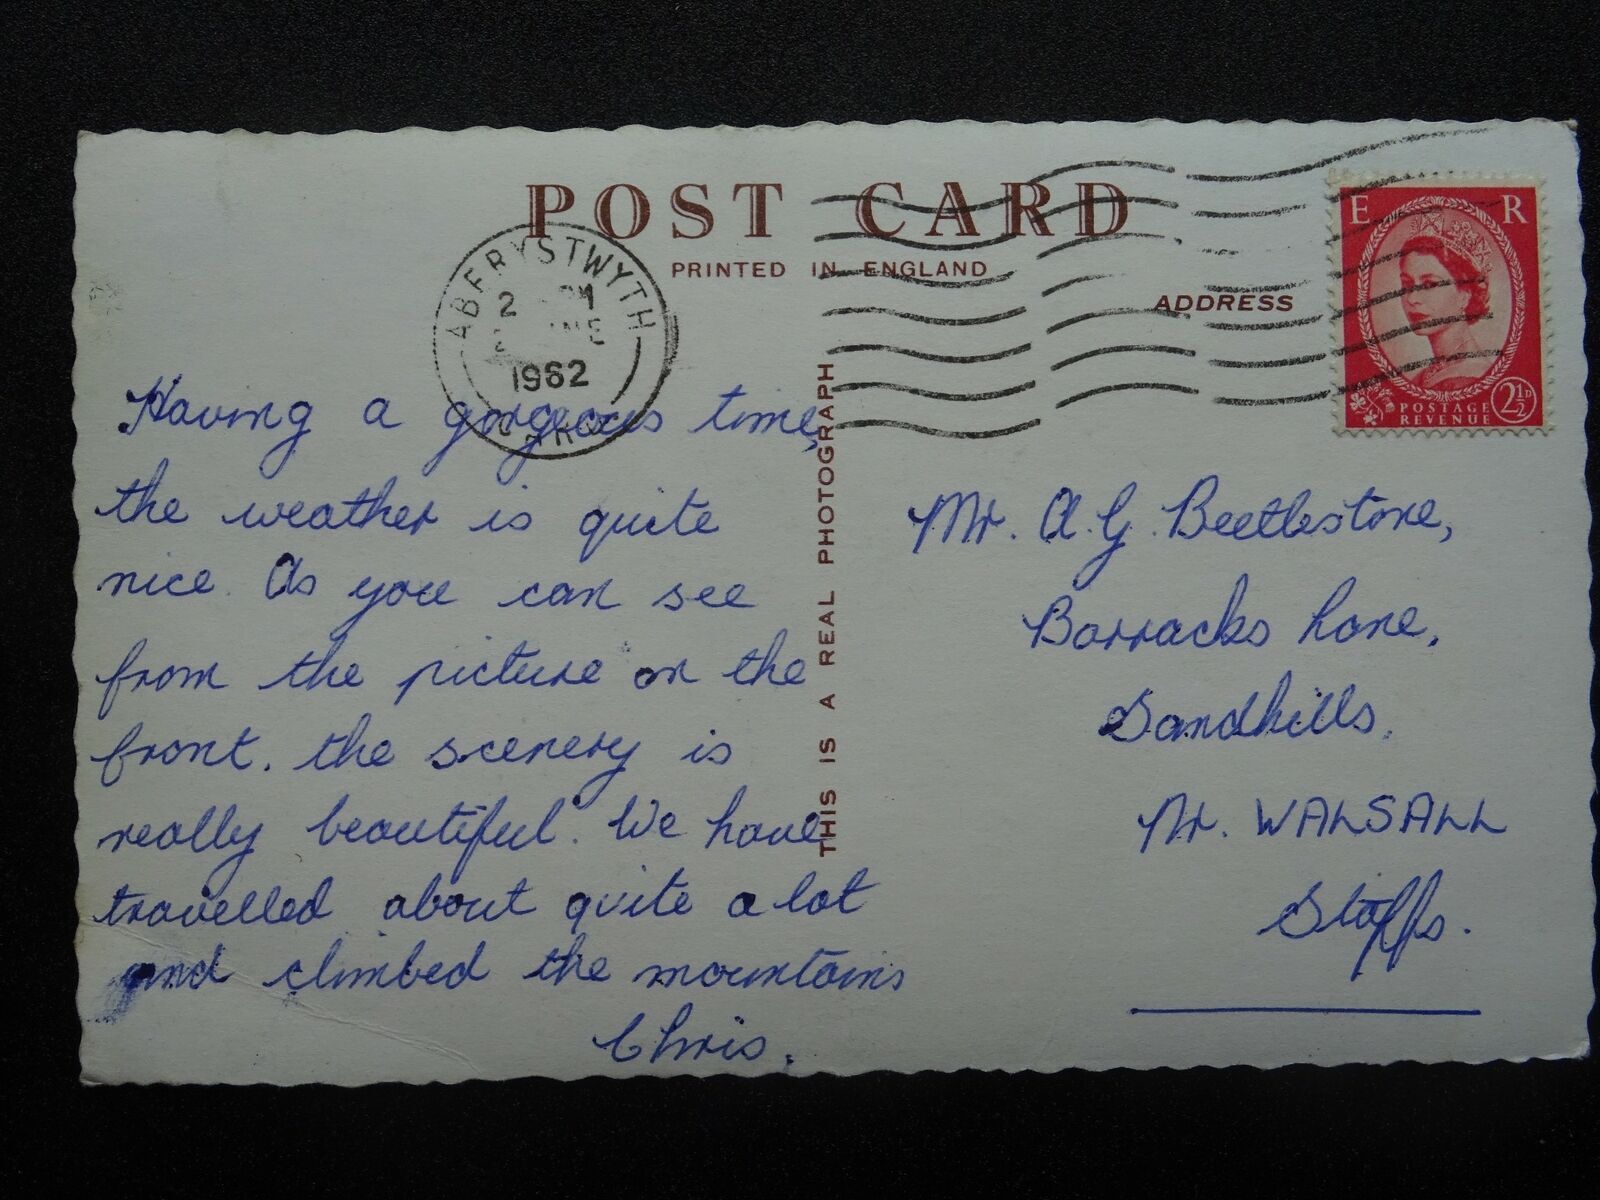 POST CARD
PRINTED IN ENGLAND
ADDRESS
ABERYSTWYTH
2 PM
1962
E R
POSTAGE
REVENUE
2½D
THIS IS A REAL PHOTOGRAPH
Having a gorgeous time,
the weather is quite
nice. As you can see
from the picture on the
front. the scenery is
really beautiful. We have
travelled about quite a lot
and climbed the mountains
Chris.
Mr. A.G. Beetlestone,
Barracks Lane,
Sandhills.
Nr. WALSALL
Staffs.